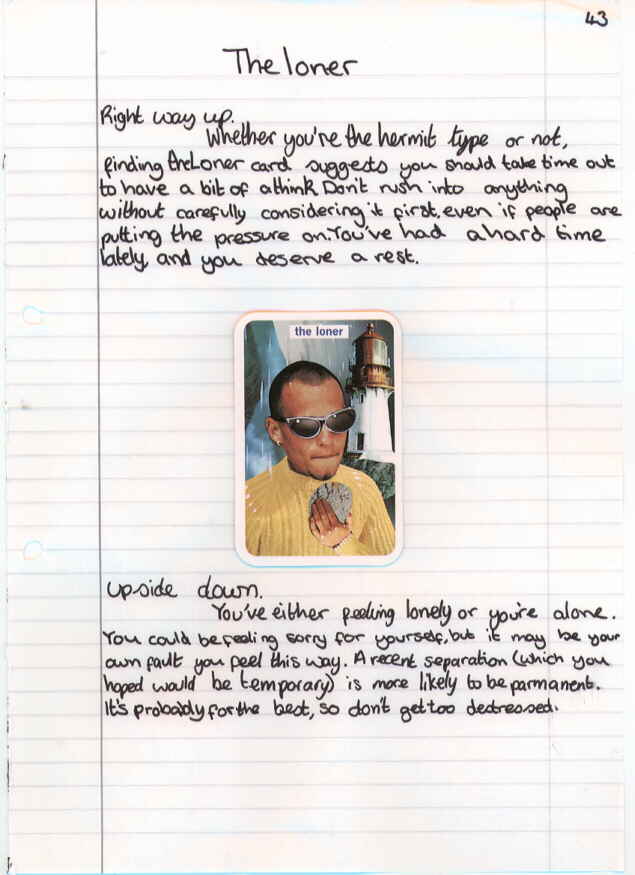 43
The loner
Right way up.
Whether you're the hermit type or not,
finding the Loner card suggests you should take time out
to have a bit of a think. Don't rush into anything
without carefully considering it first, even if people are
putting the pressure on. You've had a hard time
lately, and you deserve a rest.
the loner
upside down.
You've either feeling lonely or you're alone.
You could be feeling sorry for yourself, but it may be your
own fault you feel this way. A recent separation (which you
hoped would be temporary) is more likely to be parmanent.
It's probably for the best, so don't get too destressed.